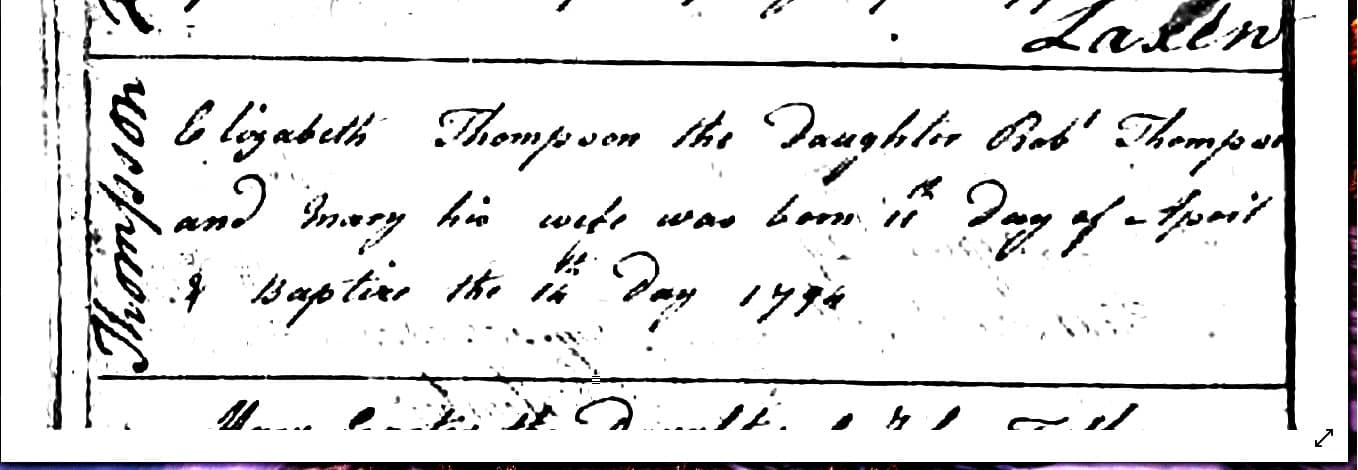 Laxton
Thompson
Elizabeth Thompson the Daughter Robt Thompson
and Mary his wife was born 11th Day of April
& Baptize the 14th Day 1794